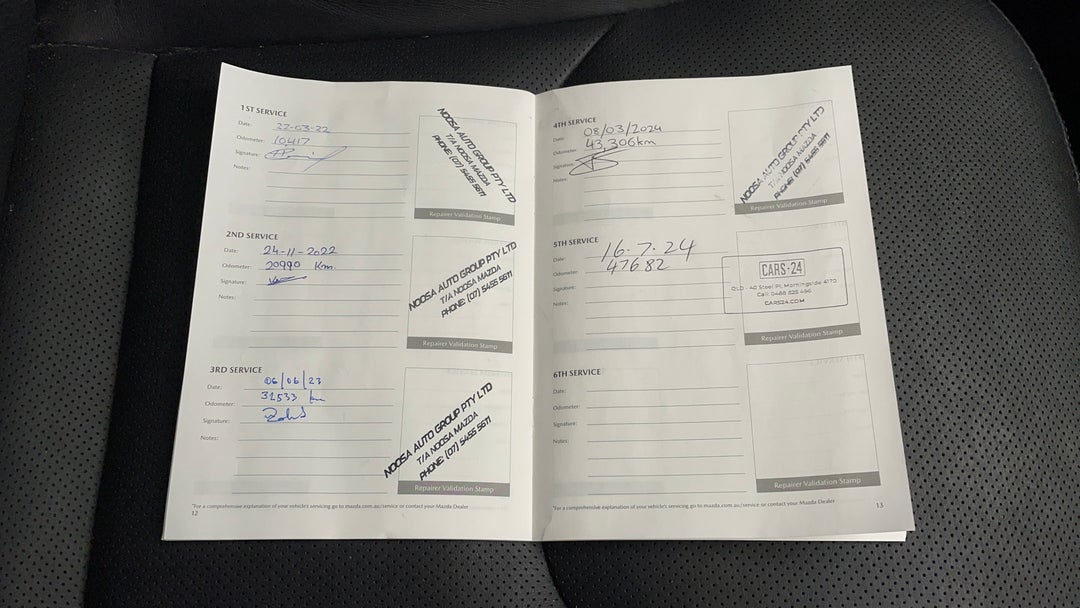 1ST SERVICE
Date: 22-03-22
Odometer: 10417
Signature:
Notes:
NOOSA AUTO GROUP PTY LTD
T/A NOOSA MAZDA
PHONE: (07) 5455 5611
Repairer Validation Stamp
2ND SERVICE
Date: 24-11-2022
Odometer: 20990 Km.
Signature:
Notes:
NOOSA AUTO GROUP PTY LTD
T/A NOOSA MAZDA
PHONE: (07) 5455 5611
Repairer Validation Stamp
3RD SERVICE
Date: 06/06/23
Odometer: 32533 km
Signature:
Notes:
NOOSA AUTO GROUP PTY LTD
T/A NOOSA MAZDA
PHONE: (07) 5455 5611
Repairer Validation Stamp
*For a comprehensive explanation of your vehicle's servicing go to mazda.com.au/service or contact your Mazda Dealer
12
4TH SERVICE
Date: 08/03/2024
Odometer: 43,306km
Signature:
Notes:
NOOSA AUTO GROUP PTY LTD
T/A NOOSA MAZDA
PHONE: (07) 5455 5611
Repairer Validation Stamp
5TH SERVICE
Date: 16-7-24
Odometer: 47682
Signature:
Notes:
CARS-24
QLD - 40 Steel Pl, Morningside 4170
Call: 0488 825 496
CARS24.COM
Repairer Validation Stamp
6TH SERVICE
Date:
Odometer:
Signature:
Notes:
Repairer Validation Stamp
*For a comprehensive explanation of your vehicle's servicing go to mazda.com.au/service or contact your Mazda Dealer
13